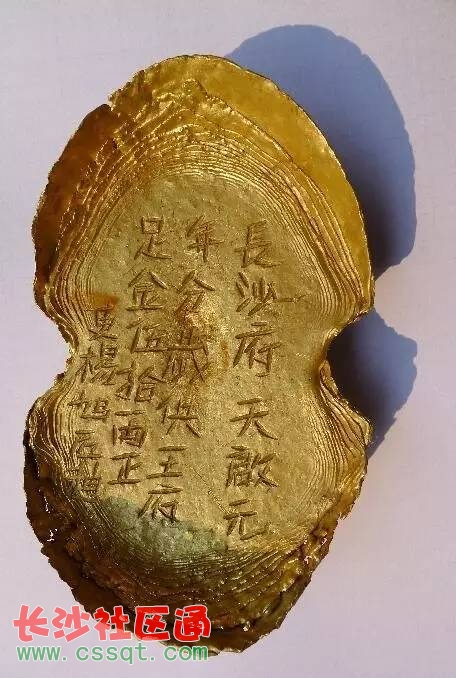 長沙府天啟元
年分歲供王府
足金伍拾両正
吏楊旭
长沙社区通
www.cssqt.com